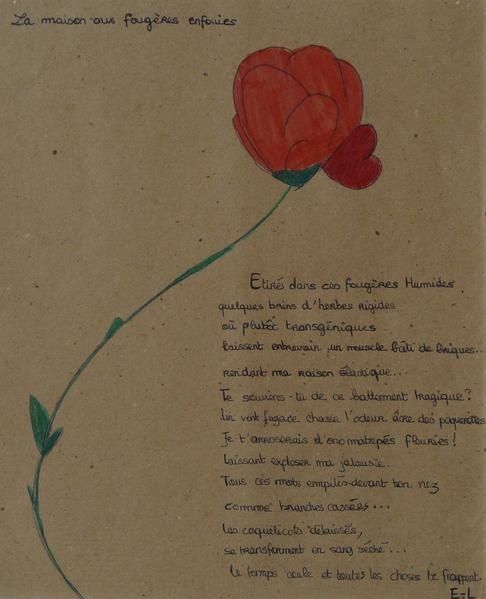 La maison aux fougères enfouies
Etiré dans ces fougères Humides
quelques brins d'herbes rigides
où plutôt transgéniques
laissent entrevoir un muscle bâti de briques...
rendant ma raison élastique...
Te souviens-tu de ce battement magique?
Un vent fugace chasse l'odeur âcre des paquerettes
Je t'arroserais d'onomatopés fleuries!
laissant exploser ma jalousie..
Tous ces mots empilés devant ton nez
comme branches cassées...
les coquelicots délaissés,
se transforment en sang séché...
le temps coule et toutes les choses te frappent.
E=L